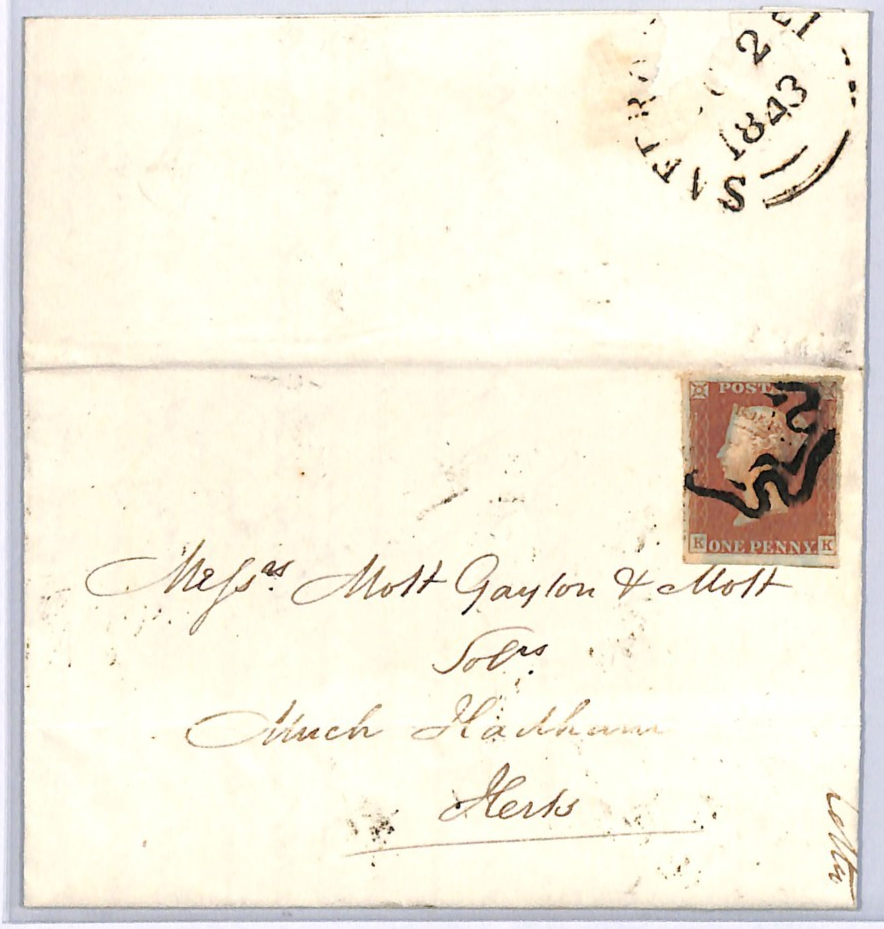 SAFFRO
2
1843
POST
K ONE PENNY K
Messrs Mott Gaylon & Mott
Solrs
Much Hadham
Herts